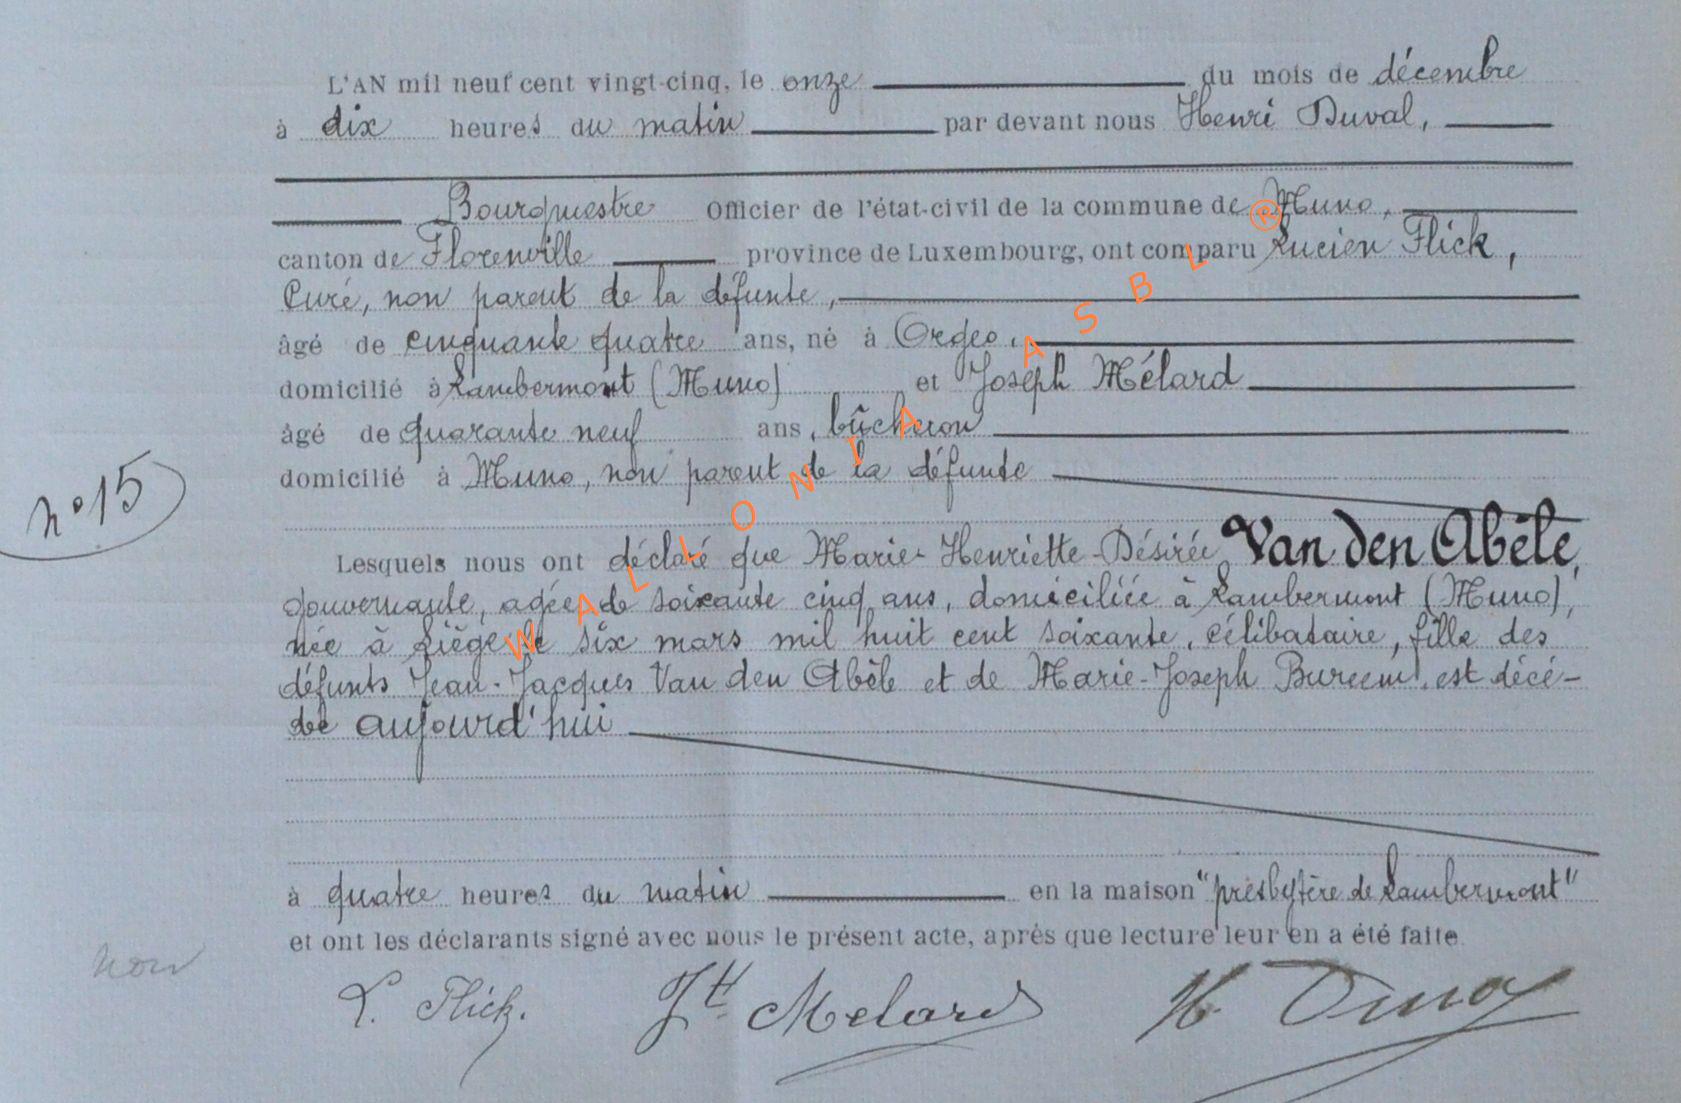 L'AN mil neuf cent vingt-cinq, le onze du mois de décembre
à dix heures du matin par devant nous Henri Duval,
Bourgmestre Officier de l'état-civil de la commune de Muno,
canton de Florenville province de Luxembourg, ont comparu Lucien Flick,
Curé, non parent de la défunte,
âgé de cinquante quatre ans, né à Orgeo,
domicilié à Lambermont (Muno) et Joseph Mélard
âgé de quarante neuf ans, bûcheron
domicilié à Muno, non parent de la défunte
n° 15
Lesquels nous ont déclaré que Marie-Henriette-Désirée Van den Abêle,
gouvernante, agée de soixante cinq ans, domiciliée à Lambermont (Muno),
née à Liège le six mars mil huit cent soixante, célibataire, fille des
défunts Jean-Jacques Van den Abêle et de Marie-Joseph est décé-
dé aujourd'hui
à quatre heures du matin en la maison "presbytère de Lambermont"
et ont les déclarants signé avec nous le présent acte, après que lecture leur en a été faite
L. Flick. Jh Melard H. Duval
WALLONIA ASBL ®